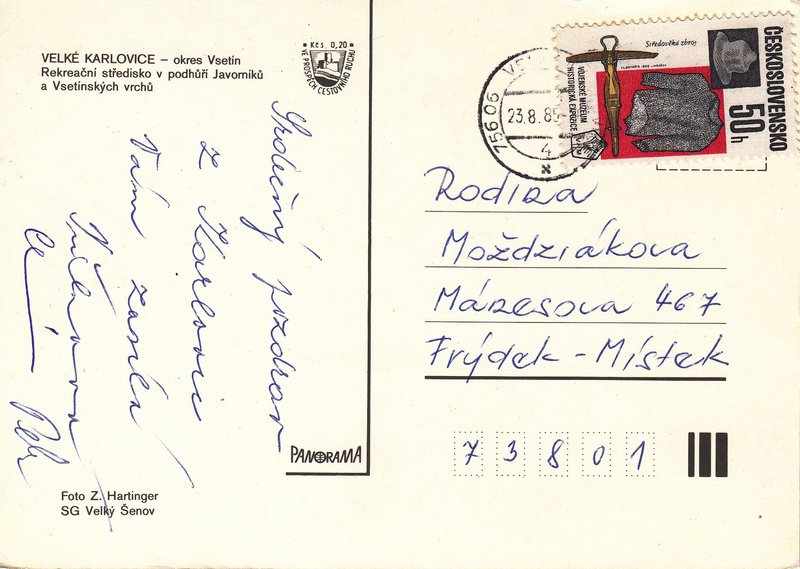 VELKÉ KARLOVICE – okres Vsetín
Rekreační středisko v podhůří Javorníků
a Vsetínských vrchů
Kčs. 0,20
VE PROSPĚCH CESTOVNÍHO RUCHU
Srdečný pozdrav
z Karlovic
Vám zasílá
a Petr
PANORAMA
Foto Z. Hartinger
SG Velký Šenov
756 06
23.8.85
4
Středověká zbroj
VOJENSKÉ MUZEUM
HISTORICKÁ EXPOZICE
ČESKOSLOVENSKO
50h
Rodina
Moždziákova
Máresova 467
Frýdek-Místek
73801